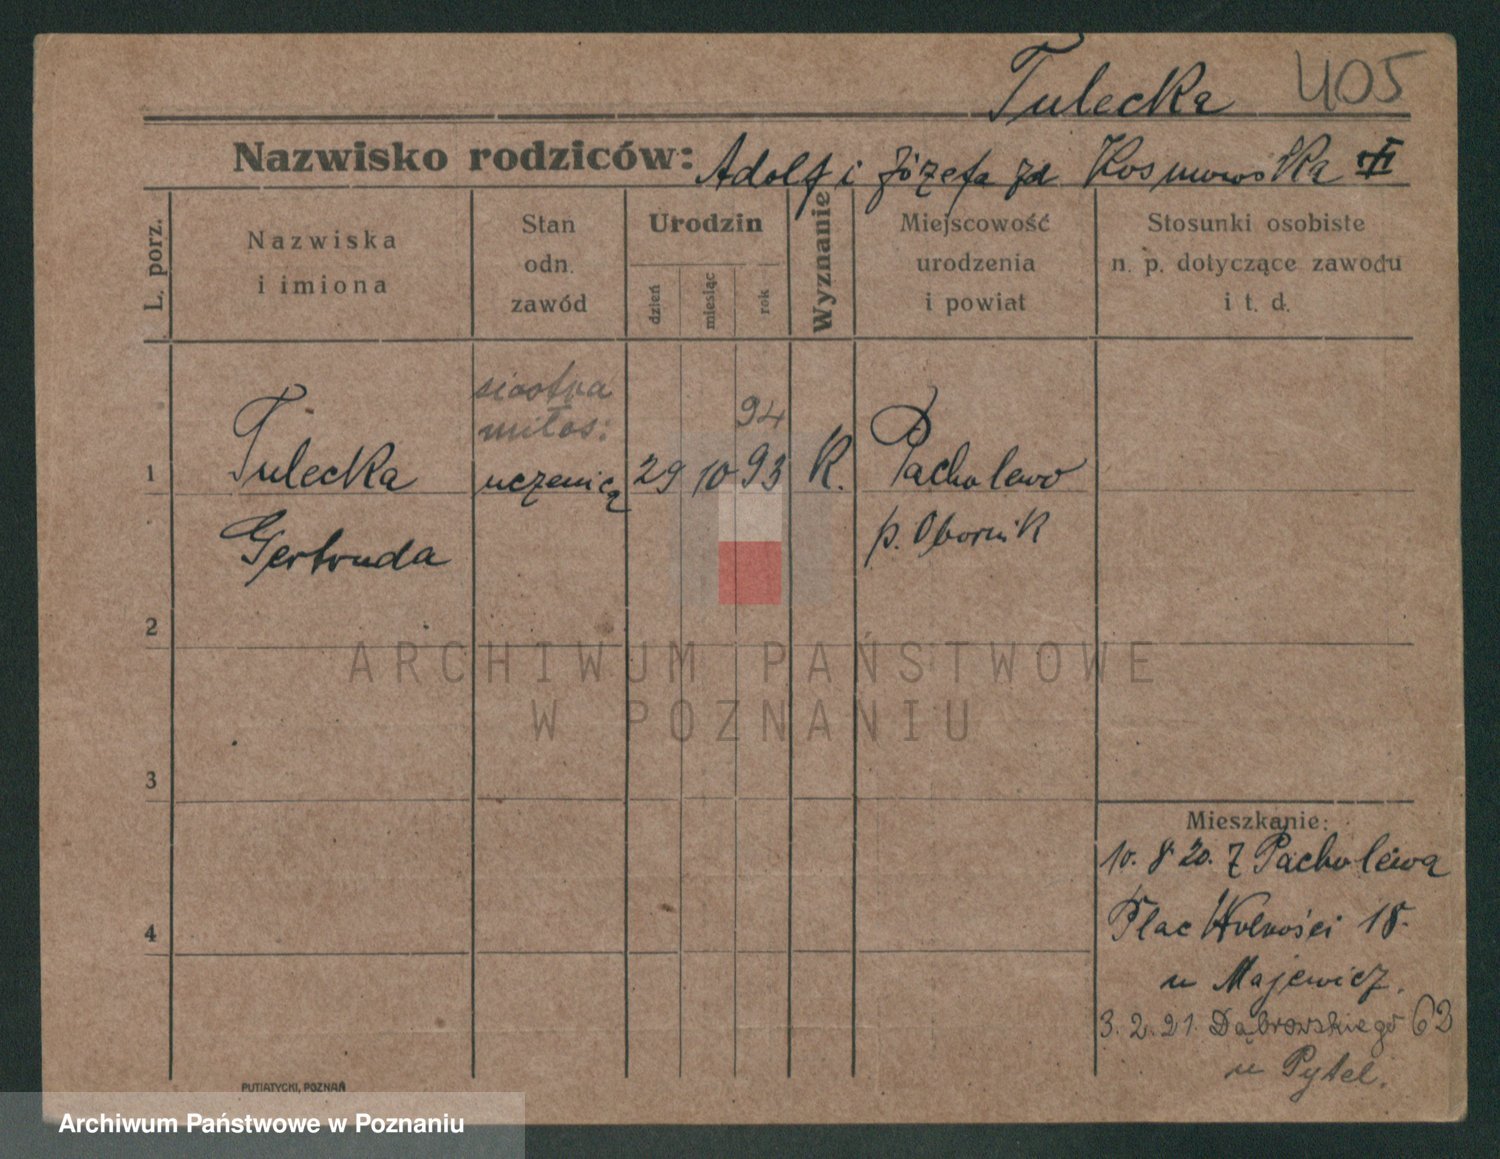 Tulecka 405
Nazwisko rodziców: Adolf i Józefa zd Kosmowska
L. porz.
Nazwiska i imiona
Stan odn. zawód
Urodzin
dzień miesiąc rok
Wyznanie
Miejscowość urodzenia i powiat
Stosunki osobiste n. p. dotyczące zawodu i t. d.
siostra
miłos: 94
1 Tulecka uczenicą 29 10 93 K. Pacholewo
Gertruda p. Obornik
2
3
4
Mieszkanie:
10. 8 20. z Pacholewa
Plac Wolności 18.
u Majewicz.
3. 2. 21. Dąbrowskiego 63
u Pytel.
PUTIATYCKI, POZNAŃ
ARCHIWUM PAŃSTWOWE
W POZNANIU
Archiwum Państwowe w Poznaniu